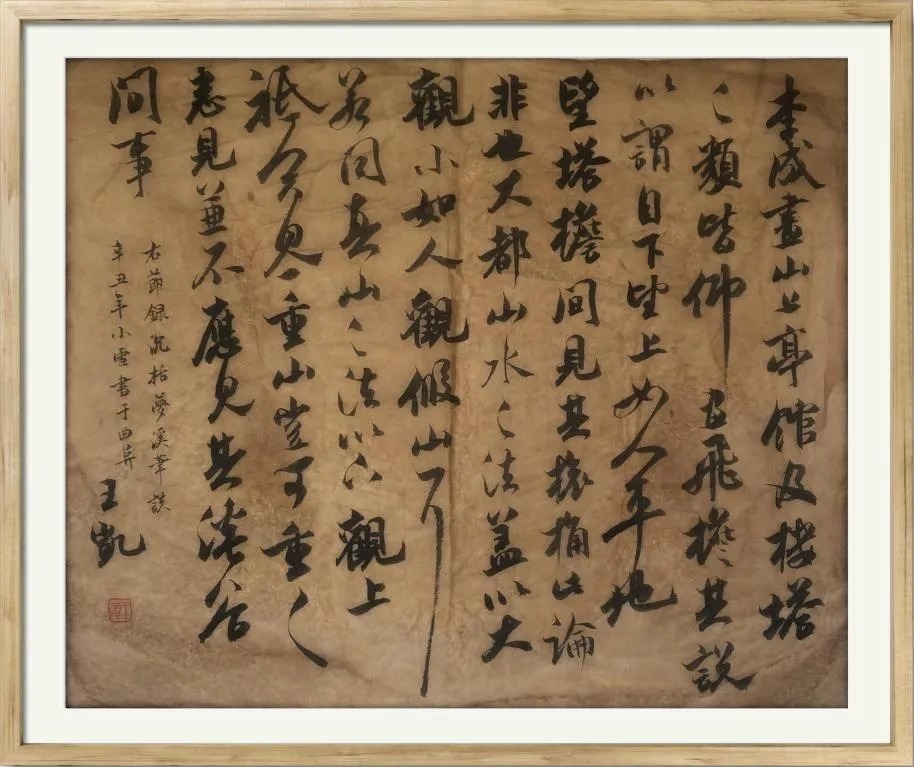 李成畫山上亭館及樓塔
之類皆仰畫飛檐其說
以謂自下望上如人平地
望塔檐間見其榱桷此論
非也大都山水之法蓋以大
觀小如人觀假山耳
若同真山之法以下觀上
祇合見一重山豈可重重
悉見兼不應見其溪谷
間事
右節録沈括夢溪筆談
辛丑年小雪書于曲阜
王凱